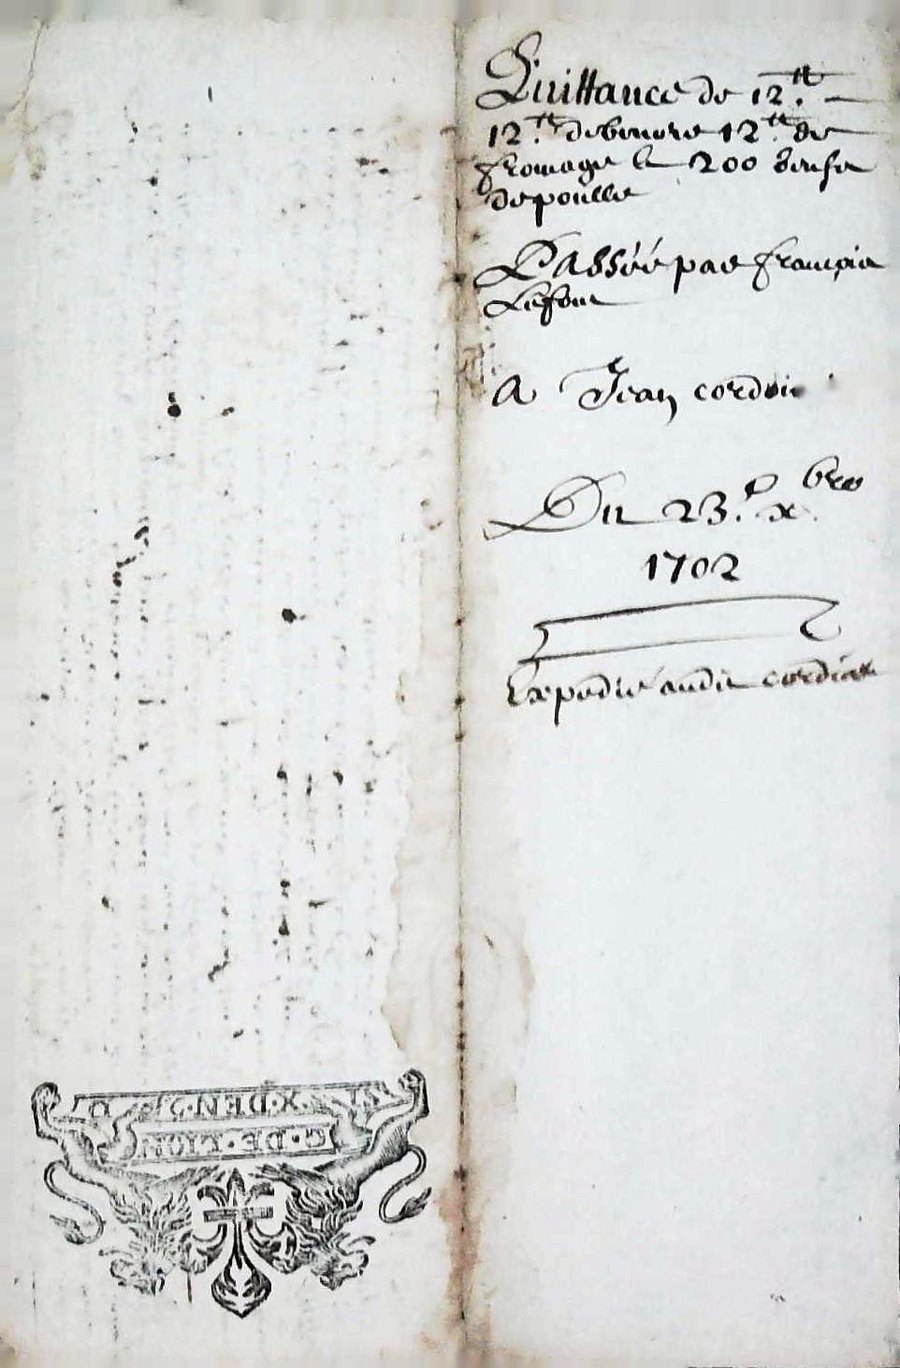 Quittance de 12.tt
12.tt de beurre 12.tt de
fromage & 200 Beufz
de poulle
Passéé par françois
Lafont
A Jean cordier
Du 23.e xbre
1702
Expedié audit cordier
X.DEN.
G.DE.LION